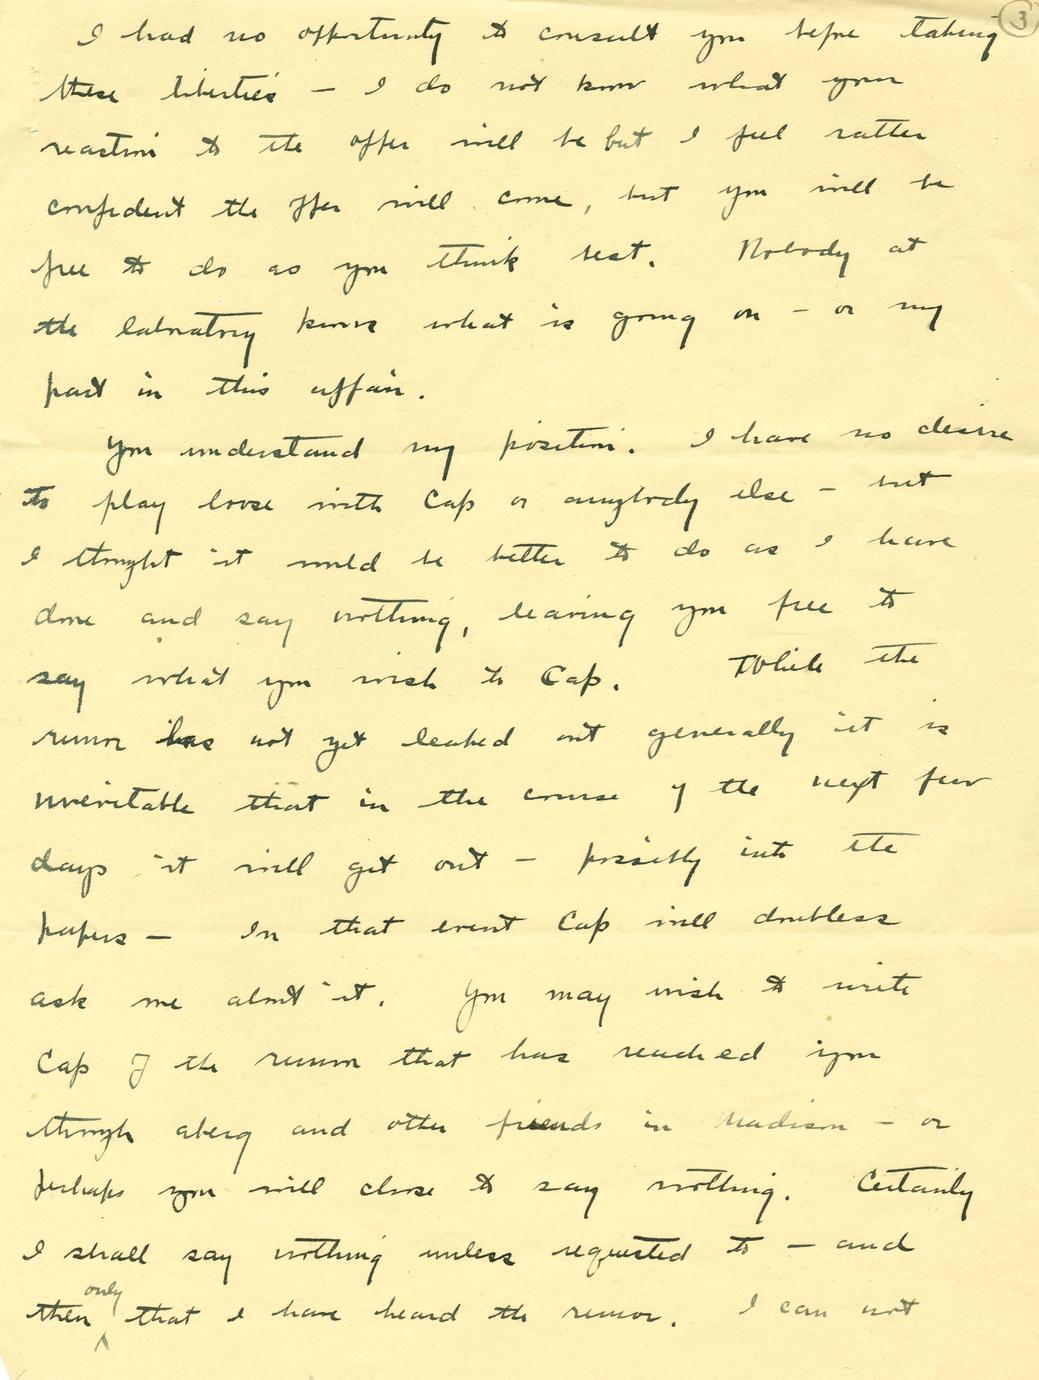 3
I had no opportunity to consult you before taking
these liberties — I do not know what your
reaction to the offer will be but I feel rather
confident the offer will come, but you will be
free to do as you think best. Nobody at
the laboratory knows what is going on — or my
part in this affair.
You understand my position. I have no desire
to play loose with Cap or anybody else — but
I thought it would be better to do as I have
done and say nothing, leaving you free to
say what you wish to Cap. While the
rumor has not yet leaked out generally it is
inevitable that in the course of the next few
days it will get out — possibly into the
papers — In that event Cap will doubtless
ask me about it. You may wish to write
Cap of the rumor that has reached you
through aberg and other friends in Madison — or
perhaps you will chose to say nothing. Certainly
I shall say nothing unless requested to — and
then only that I have heard the rumor. I can not